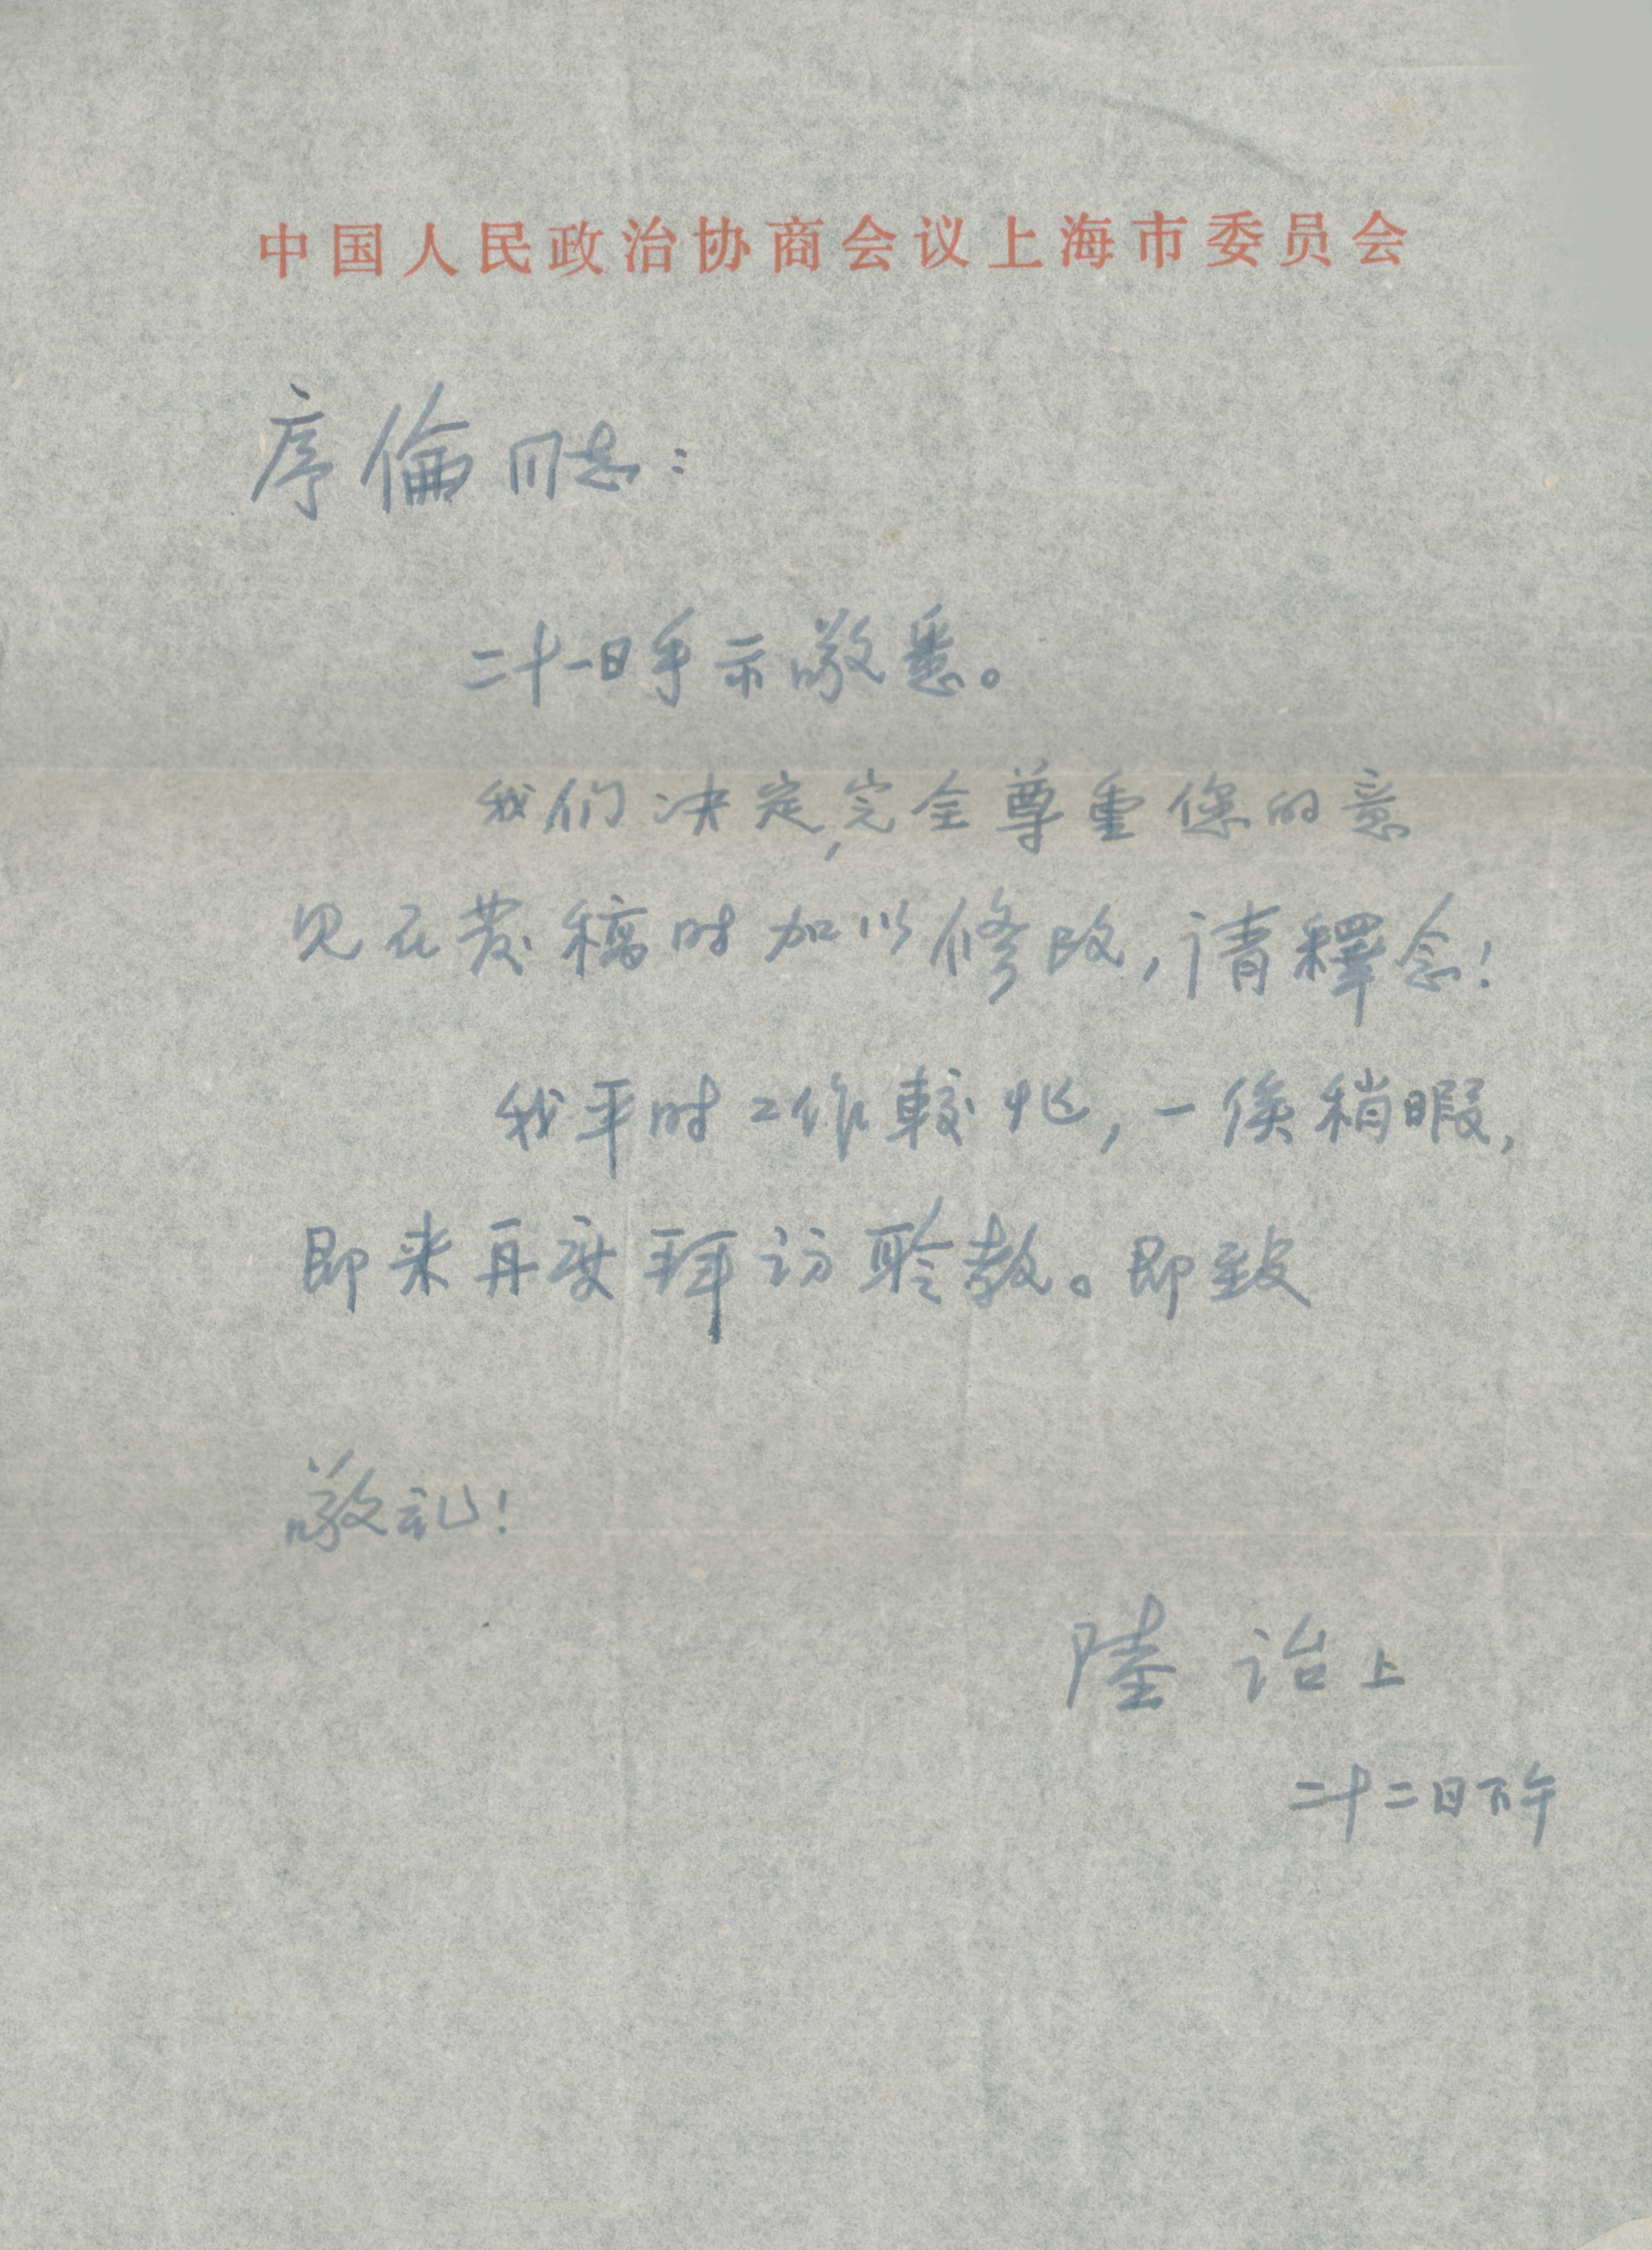 中国人民政治协商会议上海市委员会
序倫同志：
二十一日手示敬悉。
我们决定，完全尊重您的意
见在发稿时加以修改，请釋念！
我平时工作較忙，一俟稍暇，
即来再度拜访聆教。即致
敬礼！
陸诒上
二十二日下午